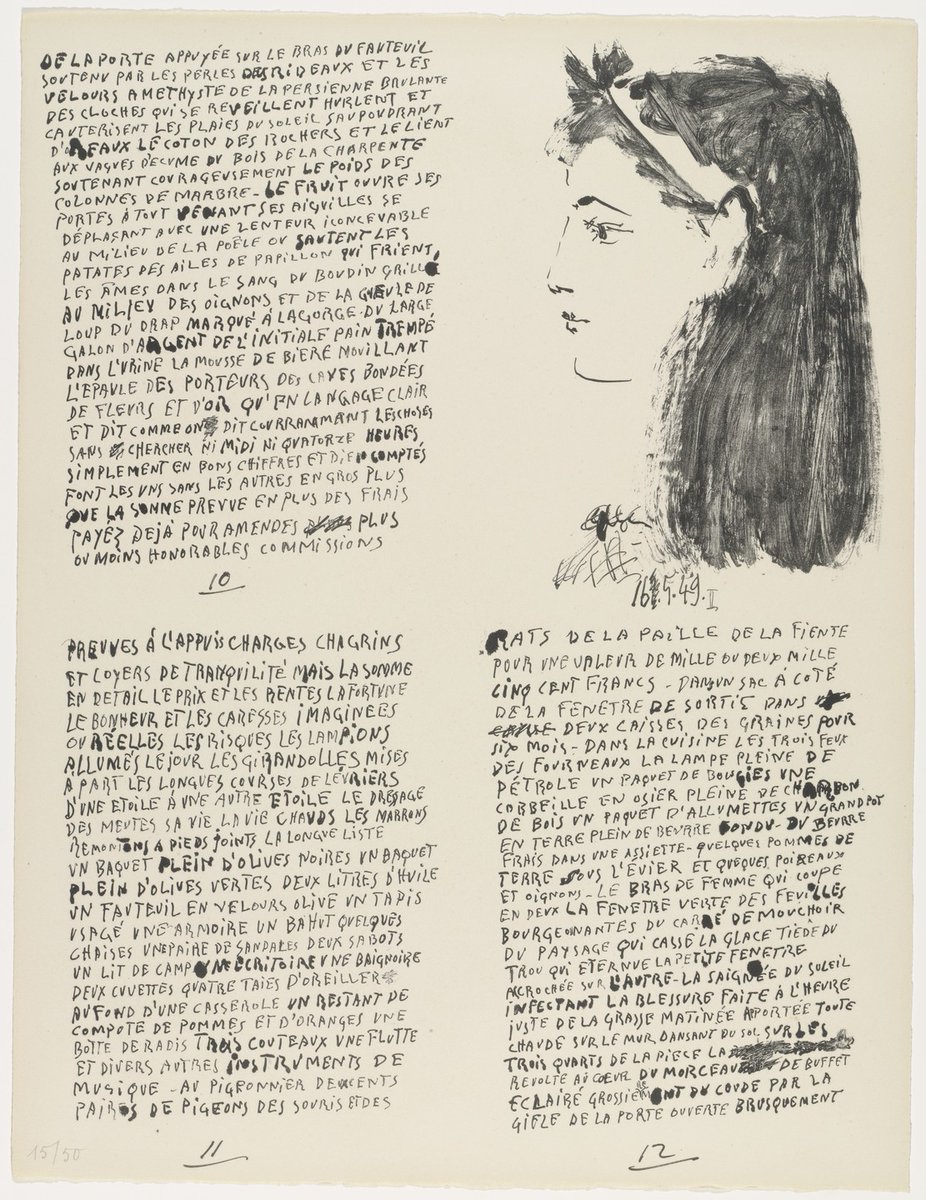 DE LA PORTE APPUYÉE SUR LE BRAS DU FAUTEUIL
SOUTENU PAR LES PERLES DES RIDEAUX ET LES
VELOURS AMETHYSTE DE LA PERSIENNE BRULANTE
DES CLOCHES QUI SE REVEILLENT HURLENT ET
CAUTERISENT LES PLAIES DU SOLEIL SAUPOUDRANT
D'OREAUX LE COTON DES ROCHERS ET LE LIENT
AUX VAGUES D'ECUME DU BOIS DE LA CHARPENTE
SOUTENANT COURAGEUSEMENT LE POIDS DES
COLONNES DE MARBRE - LE FRUIT OUVRE SES
PORTES À TOUT VENANT SES AIGUILLES SE
DÉPLAÇANT AVEC UNE LENTEUR ICONCEVABLE
AU MILIEU DE LA POÊLE OU SAUTENT LES
PATATES DES AILES DE PAPILLON QUI FRIENT,
LES ÂMES DANS LE SANG DU BOUDIN GRILLÉ
AU MILIEU DES OIGNONS ET DE LA GUEULE DE
LOUP DU DRAP MARQUÉ À LA GORGE DU LARGE
GALON D'ARGENT DE L'INITIALE PAIN TREMPÉ
DANS L'URINE LA MOUSSE DE BIERE MOUILLANT
L'EPAULE DES PORTEURS DES CAVES BONDÉES
DE FLEURS ET D'OR QU'EN LANGAGE CLAIR
ET DIT COMME ON DIT COURRANMENT LES CHOSES
SANS CHERCHER NI MIDI NI QUATORZE HEURES
SIMPLEMENT EN BONS CHIFFRES ET DIEN COMPTÉS
FONT LES UNS SANS LES AUTRES EN GROS PLUS
QUE LA SOMME PREVUE EN PLUS DES FRAIS
PAYÉZ DEJÀ POUR AMENDES PLUS
OU MOINS HONORABLES COMMISSIONS
10
16.5.49. II
PREUVES À L'APPUIS CHARGES CHAGRINS
ET LOYERS DE TRANQUILITÉ MAIS LA SOMME
EN DETAIL LE PRIX ET LES RENTES LA FORTUNE
LE BONHEUR ET LES CARESSES IMAGINEES
OU RÉELLES LES RISQUES LES LAMPIONS
ALLUMÉS LE JOUR LES GIRANDOLLES MISES
A PART LES LONGUES COURSES DE LÉVRIERS
D'UNE ETOILE À UNE AUTRE ETOILE LE DRESAGE
DES MEUTES SA VIE LA VIE CHAUDS LES MARRONS
REMONTONS À PIEDS JOINTS LA LONGUE LISTE
UN BAQUET PLEIN D'OLIVES NOIRES UN BAQUET
PLEIN D'OLIVES VERTES DEUX LITRES D'HUILE
UN FAUTEUIL EN VELOURS OLIVE UN TAPIS
USAGÉ UNE ARMOIRE UN BAHUT QUELQUES
CHAISES UNE PAIRE DE SANDALES DEUX SABOTS
UN LIT DE CAMP UNE ÉCRITOIRE UNE BAIGNOIRE
DEUX CUVETTES QUATRE TAIES D'OREILLER
AU FOND D'UNE CASSEROLE UN RESTANT DE
COMPOTE DE POMMES ET D'ORANGES UNE
BOTTE DE RADIS TROIS COUTEAUX UNE FLUTTE
ET DIVERS AUTRES INSTRUMENTS DE
MUSIQUE - AU PIGEONNIER DEUX CENTS
PAIRES DE PIGEONS DES SOURIS ET DES
11
RATS DE LA PAILLE DE LA FIENTE
POUR UNE VALEUR DE MILLE OU DEUX MILLE
CINQ CENT FRANCS - DANS UN SAC À COTÉ
DE LA FENETRE DE SORTIE DANS
DEUX CAISSES DES GRAINES POUR
SIX MOIS - DANS LA CUISINE LES TROIS FEUX
DES FOURNEAUX LA LAMPE PLEINE DE
PÉTROLE UN PAQUET DE BOUGIES UNE
CORBEILLE EN OSIER PLEINE DE CHARBON
DE BOIS UN PAQUET D'ALLUMETTES UN GRAND POT
EN TERRE PLEIN DE BEURRE FONDU - DU BEURRE
FRAIS DANS UNE ASSIETTE - QUELQUES POMMES DE
TERRE SOUS L'EVIER ET QUEQUES POIREAUX
ET OIGNONS - LE BRAS DE FEMME QUI COUPE
EN DEUX LA FENETRE VERTE DES FEUILLES
BOURGEONNANTES DU CARRÉ DE MOUCHOIR
DU PAYSAGE QUI CASSE LA GLACE TIÈDE DU
TROU QUI ETERNUE LA PETITE FENETRE
ACCROCHÉE SUR L'AUTRE - LA SAIGNÉE DU SOLEIL
INFECTANT LA BLESSURE FAITE À L'HEURE
JUSTE DE LA GRASSE MATINÉE APPORTÉE TOUTE
CHAUDE SUR LE MUR DANSANT DU SOL SUR LES
TROIS QUARTS DE LA PIECE LA
REVOLTE AU COEUR DU MORCEAU DE BUFFET
ECLAIRÉ GROSSIEMENT DU COUDE PAR LA
GIFLE DE LA PORTE OUVERTE BRUSQUEMENT
12
15/50